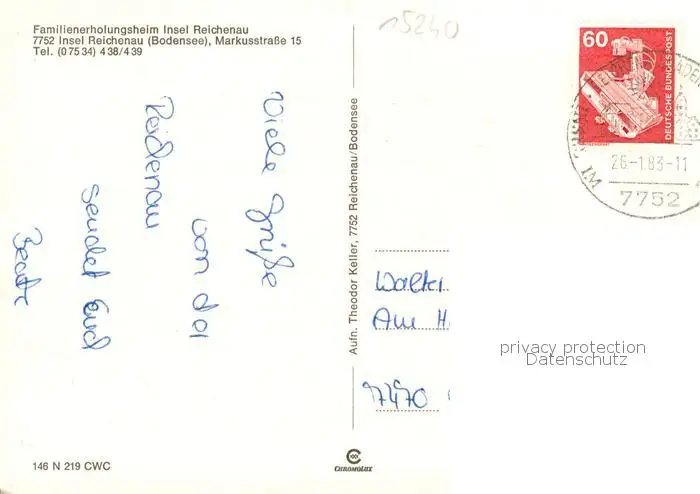 Familienerholungsheim Insel Reichenau
7752 Insel Reichenau (Bodensee), Markusstraße 15
Tel. (0 75 34) 4 38/4 39
15240
60
DEUTSCHE BUNDESPOST
26-1.83-11
7752
Viele Grüße
von der
Reichenau
sendet Euch
Beate
Aufn. Theodor Keller, 7752 Reichenau/Bodensee
Walter
Am H
7470
privacy protection
Datenschutz
146 N 219 CWC
CHROMOLUX